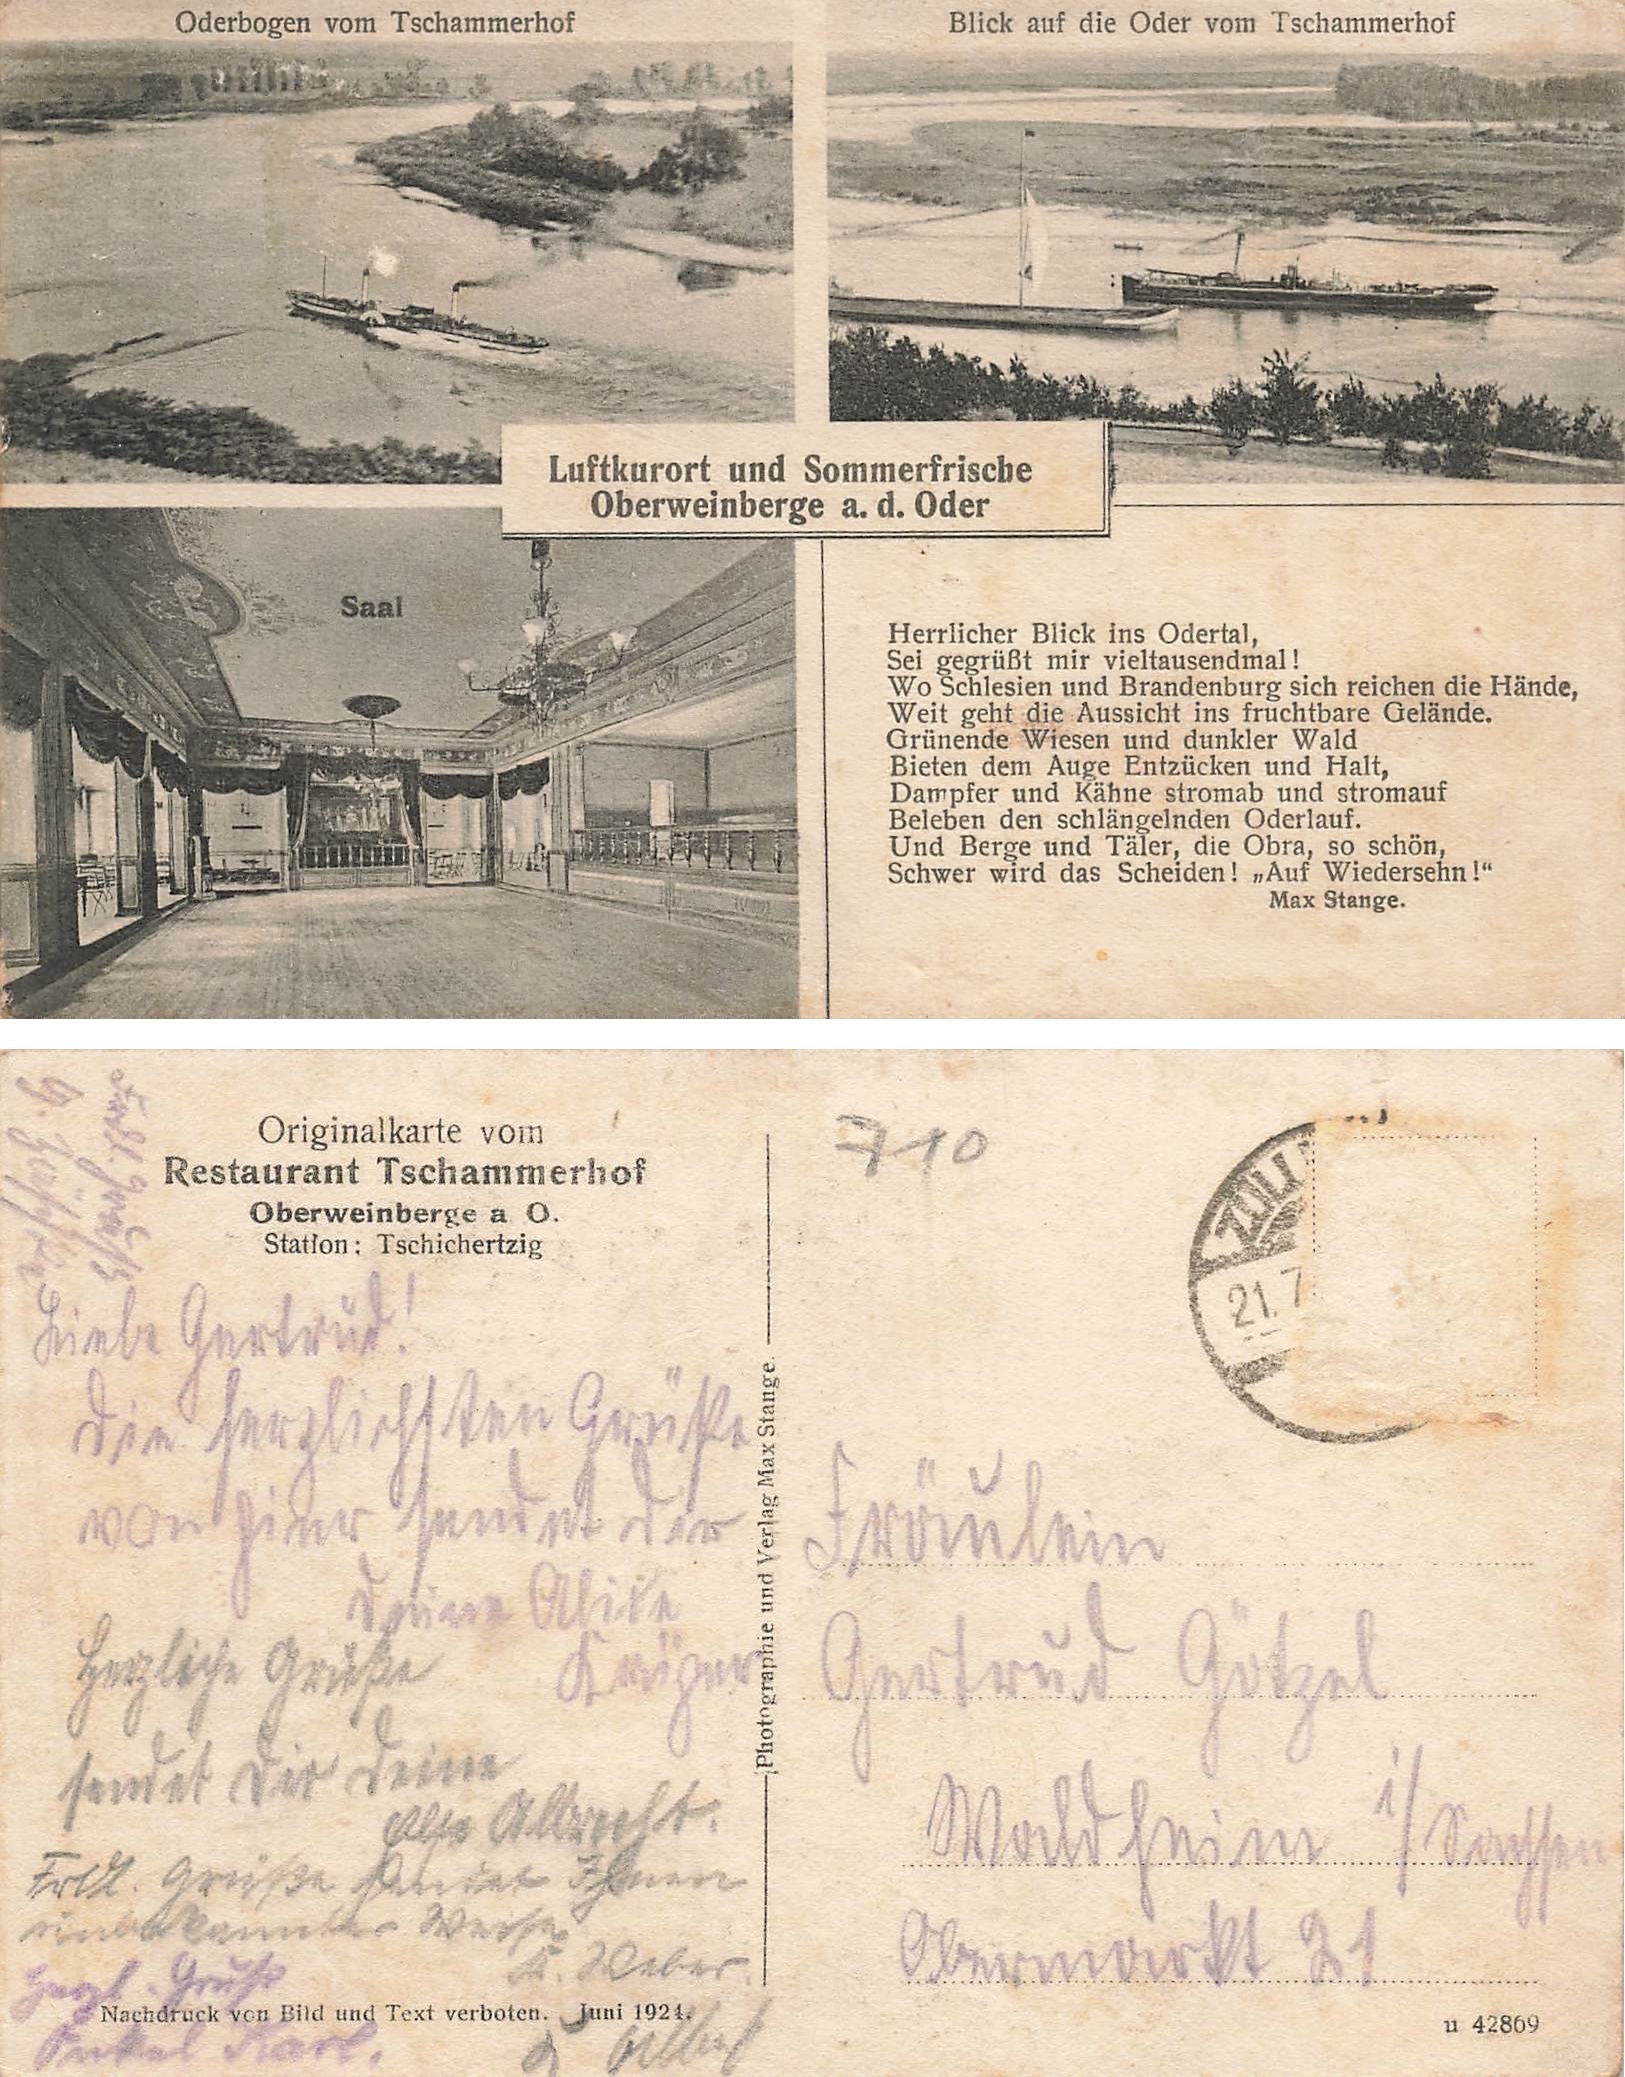 Oderbogen vom Tschammerhof
Blick auf die Oder vom Tschammerhof
Luftkurort und Sommerfrische
Oberweinberge a. d. Oder
Saal
Herrlicher Blick ins Odertal,
Sei gegrüßt mir vieltausendmal!
Wo Schlesien und Brandenburg sich reichen die Hände,
Weit geht die Aussicht ins fruchtbare Gelände.
Grünende Wiesen und dunkler Wald
Bieten dem Auge Entzücken und Halt,
Dampfer und Kähne stromab und stromauf
Beleben den schlängelnden Oderlauf.
Und Berge und Täler, die Obra, so schön,
Schwer wird das Scheiden! „Auf Wiedersehn!“
Max Stange.
Originalkarte vom
Restaurant Tschammerhof
Oberweinberge a O.
Station: Tschichertzig
Liebe Gertrud!
Die herzlichsten Grüße
von hier sendet dir
deine Alice
Krüger
Herzliche Grüße
sendet Dir deine
Albrecht.
Frdl. Grüße sendet Ihnen
unbekannter Weise
K. Weber.
Herzl. Gruß
Onkel Karl.
Nachdruck von Bild und Text verboten. Juni 1924.
Photographie und Verlag Max Stange.
710
ZÜLL
21.7
Fräulein
Gertrud Götzel
Waldheim i/Sachsen
Obermarkt 21
u 42869